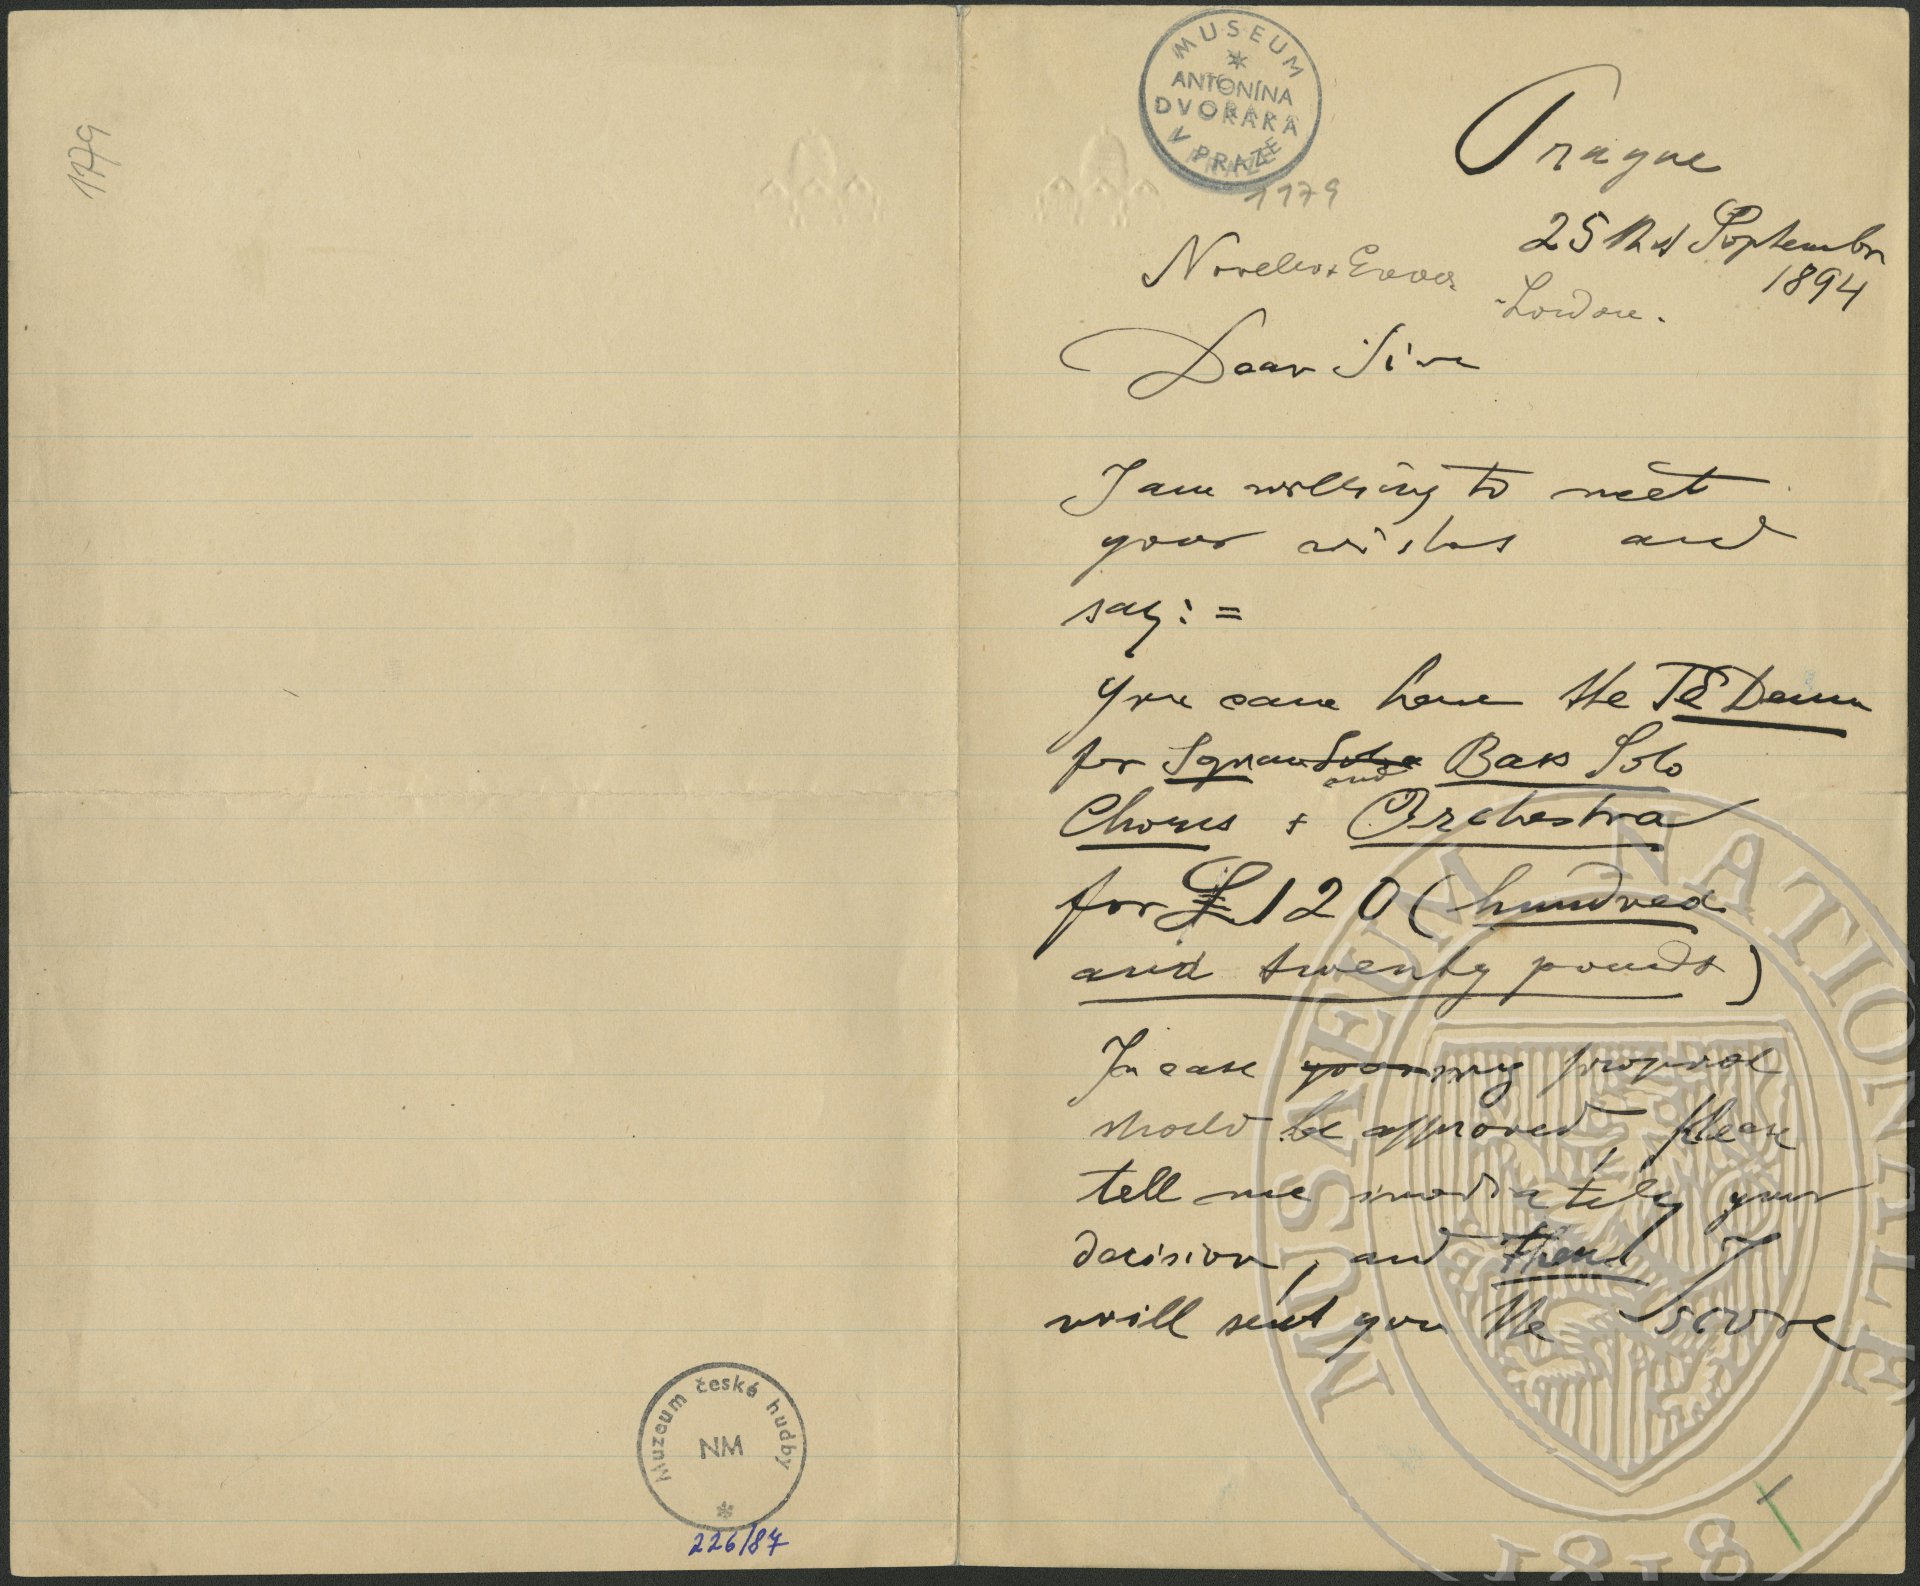 1179
MUSEUM
ANTONÍNA
DVOŘÁKA
V PRAZE
1179
Prague
25 Septembr
1894
Novello &
London.
Dear Sir
I am willing to meet
your wishes and
say: =
You can have the Te Deum
for Sopran and Bass Solo
Chorus + Orchestra
for £ 120 (hundred
and twenty pounds)
In case your my proposal
should be approved, please
tell me imediately your
decision, and then I
will sent you the score
Muzeum české hudby
NM
226/87
MUSEUM NATIONALE
1818